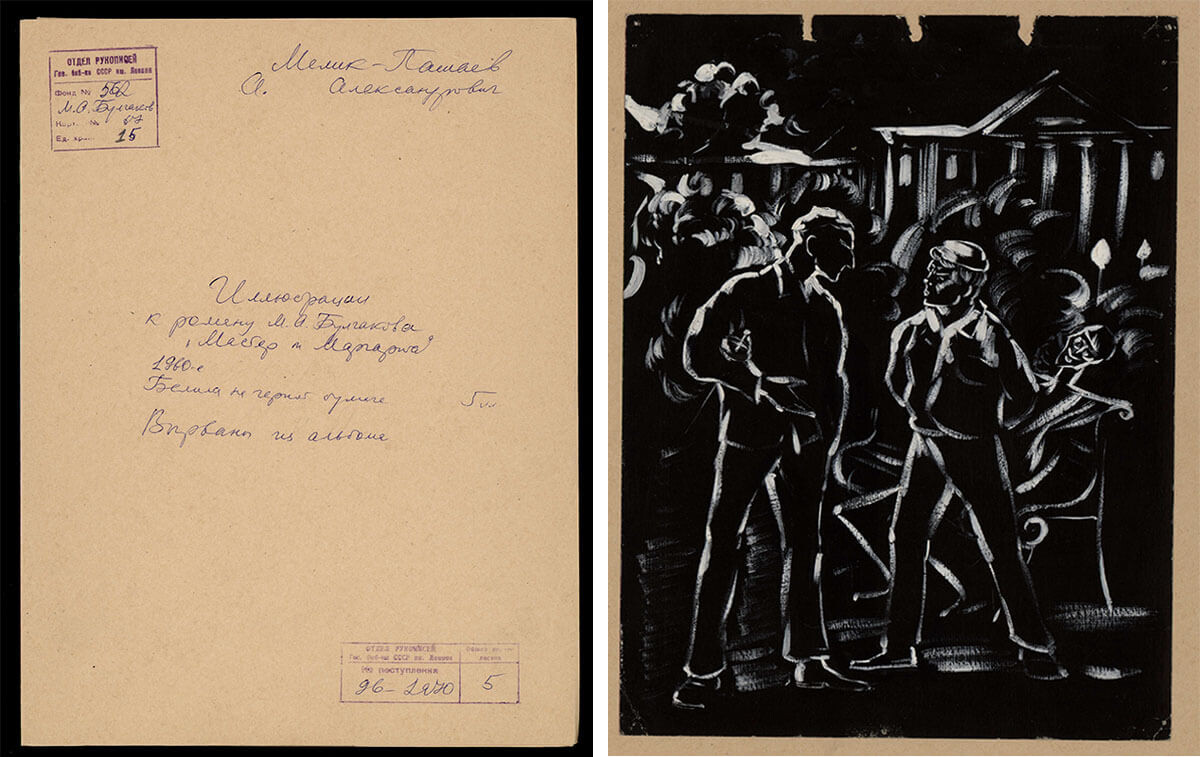 ОТДЕЛ РУКОПИСЕЙ
Гос. биб-ка СССР им. Ленина
Фонд № 562
М.А. Булгаков
Карт. №
Ед. хр. 15
Мелик-Пашаев
А. Александрович
Иллюстрации
к роману М.А. Булгакова
„Мастер и Маргарита"
1960-е
Белила на черной бумаге 5
Вырваны из альбома
ОТДЕЛ РУКОПИСЕЙ
Гос. биб-ка СССР им. Ленина
№ поступления
96-1970
5